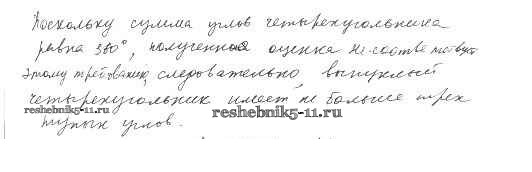 Поскольку сумма углов четырехугольника
равна 360°, полученная оценка не соответствует
этому требованию, следовательно, выпуклый
четырехугольник имеет не больше трех
reshebnik5-11.ru reshebnik5-11.ru
тупых углов.